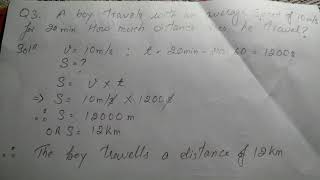 Q3. A boy travels with an average speed of 10m/s
for 20min How much distance does he travel?
Sol^n V = 10m/s ; t = 20min = 20×60 = 1200s
S = ?
S = v × t
⇒ S = 10m/s × 1200s
∴ S = 12000 m
OR S = 12km
∴ The boy travells a distance of 12km